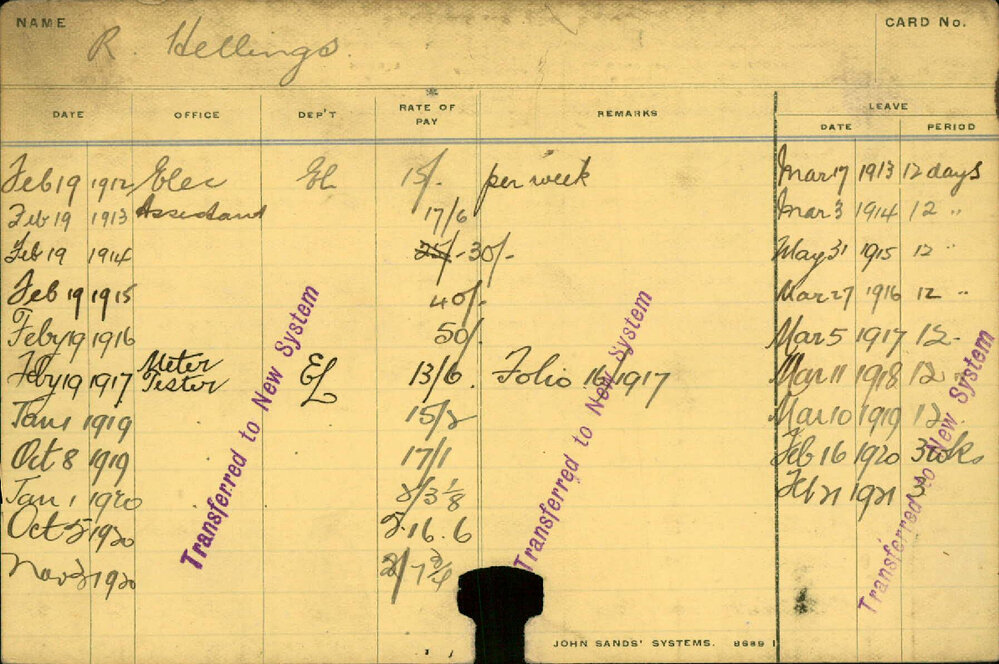 NAME R. Hellings. CARD No.
DATE OFFICE DEP'T RATE OF PAY REMARKS LEAVE
DATE PERIOD
Feb 19 1912 Elec EL 15/- per week Mar 17 1913 12 days
Feb 19 1913 Assistant 17/6 Mar 3 1914 12 "
Feb 19 1914 25/- 30/- May 31 1915 12 "
Feb 19 1915 40/- Mar 27 1916 12 "
Feby 19 1916 50/- Mar 5 1917 12 "
Feby 19 1917 Meter Tester EL 13/6 Folio 16/1917 Mar 11 1918 12 "
Jan 1 1919 15/2 Mar 10 1919 12
Oct 8 1919 17/1 Feb 16 1920 3 wks
Jan 1 1920 2/3 1/8 Feb 21 1921 3
Oct 5 1920 2.16.6
Nov 3 1920 2/7 3/4
Transferred to New System
Transferred to New System
Transferred to New System
JOHN SANDS' SYSTEMS. 8689